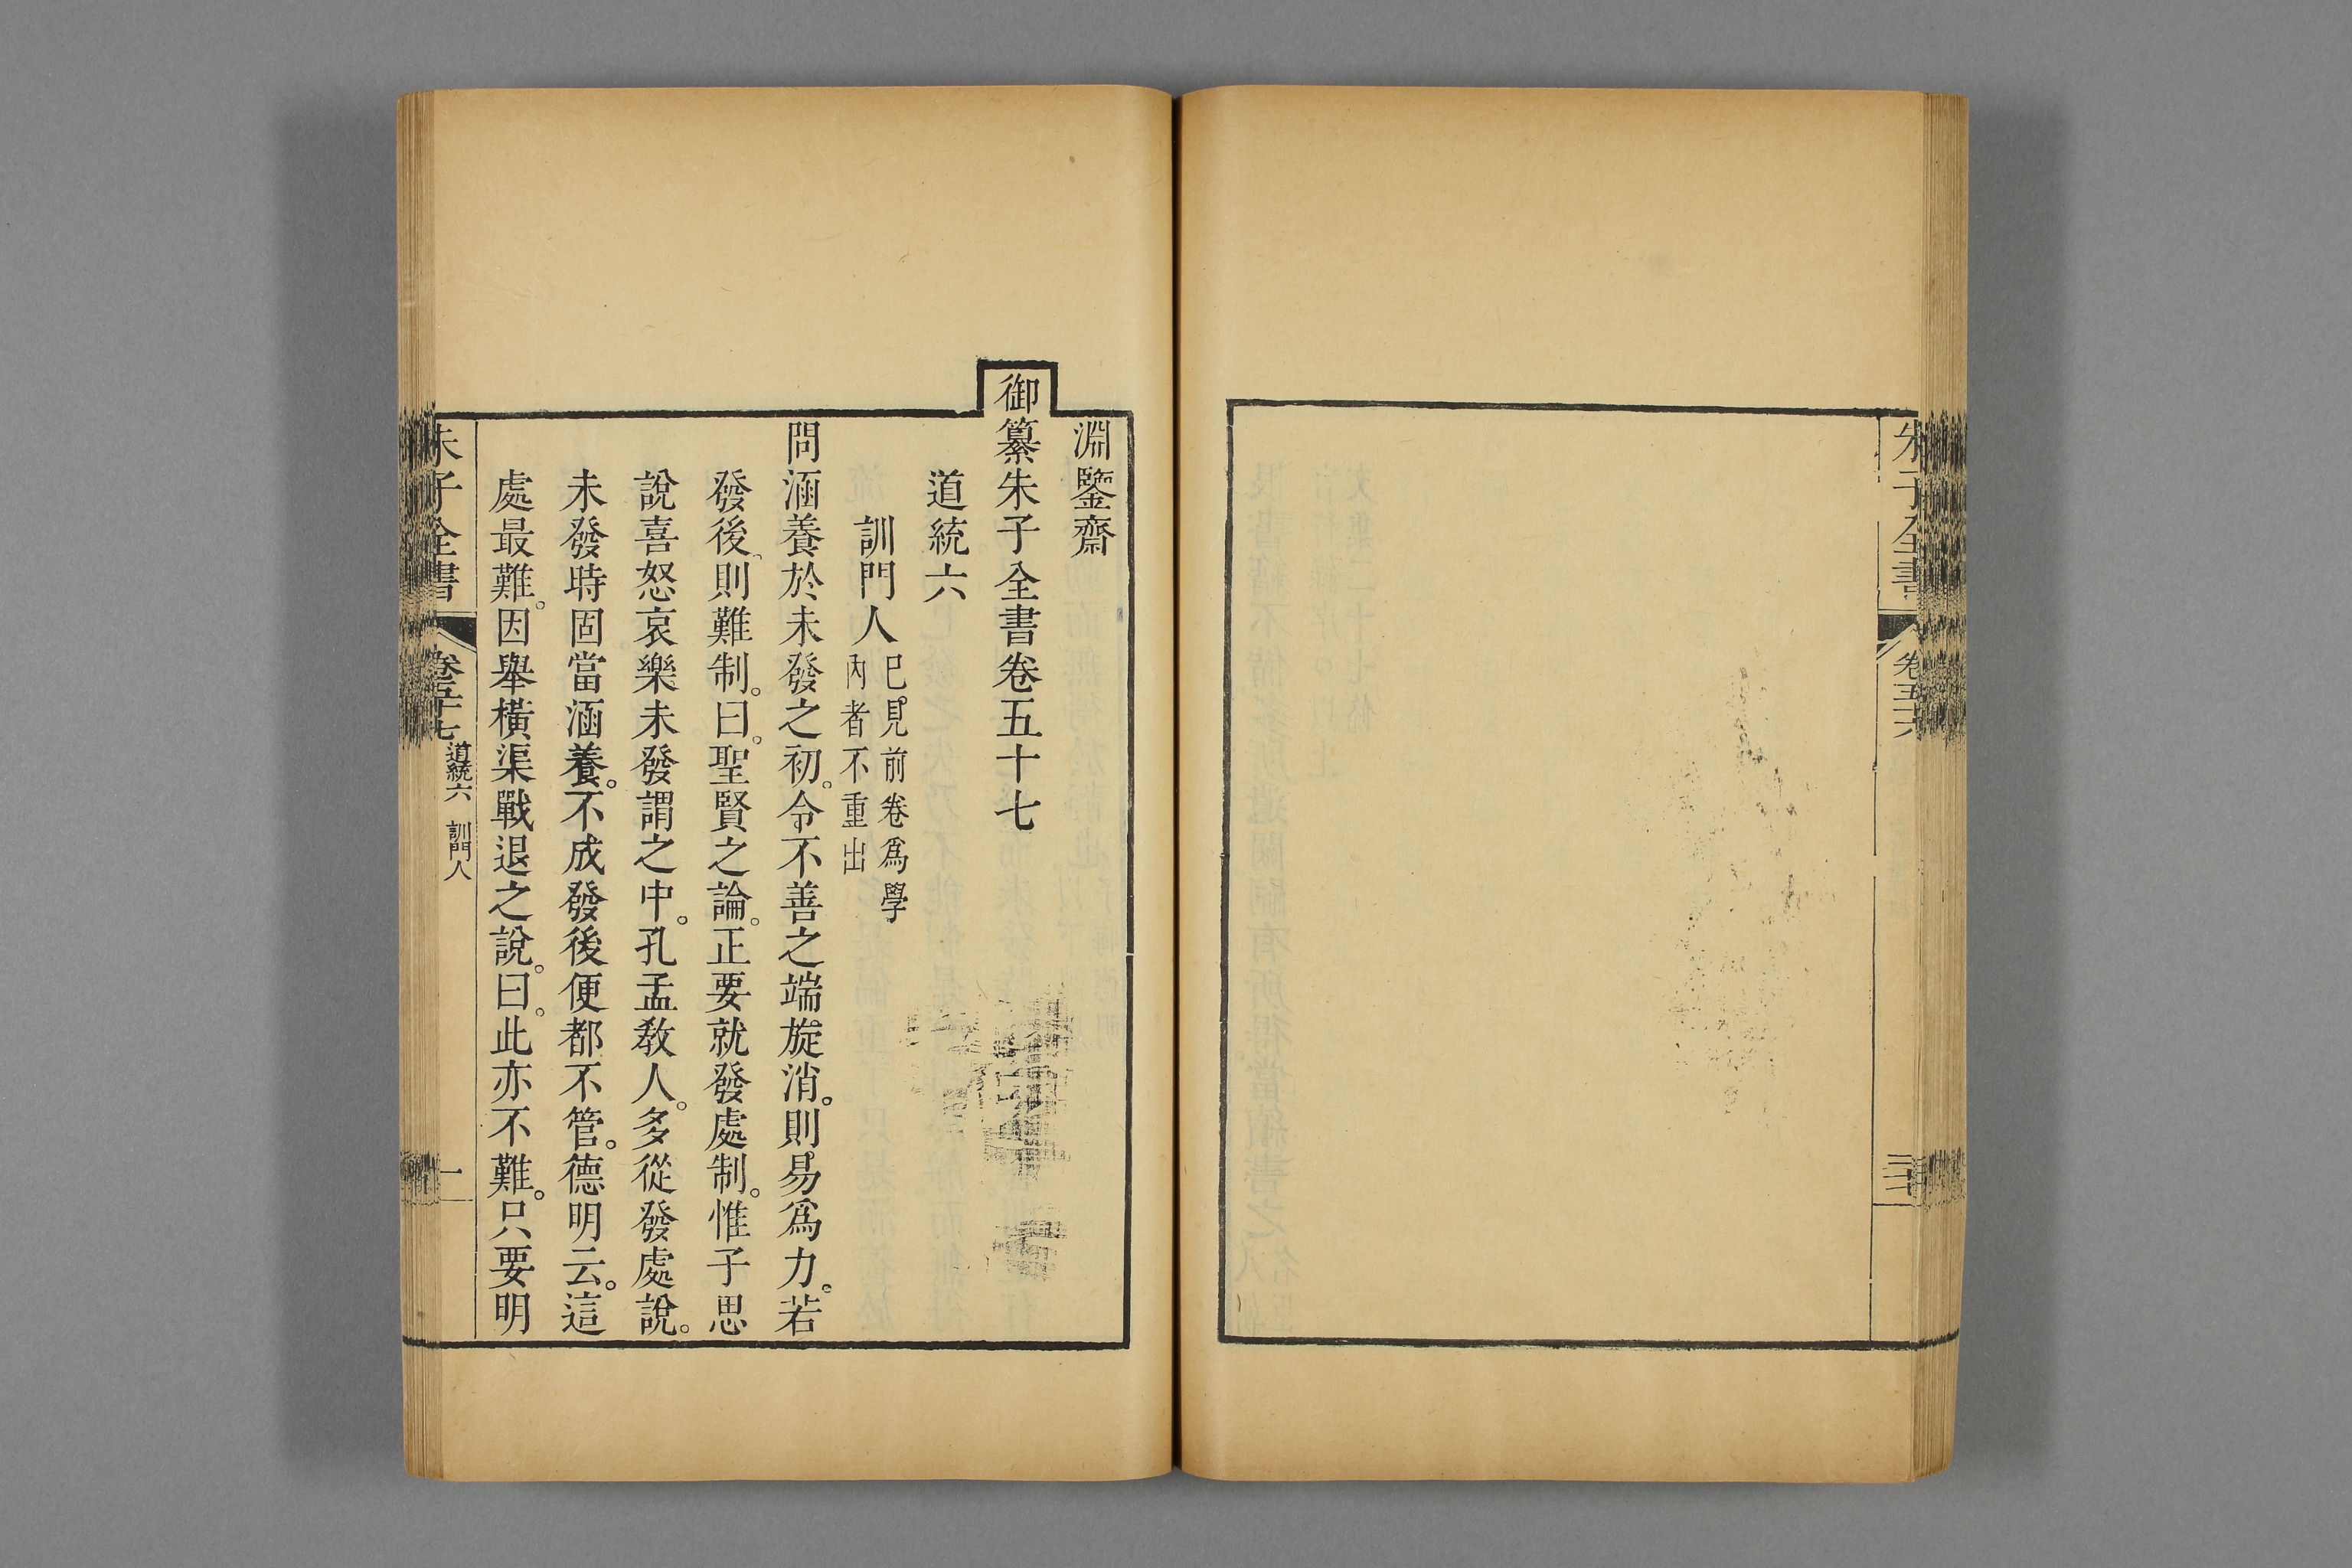 朱子全書
卷五十六
淵鑒齋
御纂朱子全書卷五十七
道統六
訓門人
已見前卷爲學
內者不重出
問涵養於未發之初。令不善之端旋消。則易爲力。若
發後、則難制。曰。聖賢之論。正要就發處制。惟子思
說喜怒哀樂未發謂之中。孔孟教人。多從發處說。
未發時固當涵養。不成發後便都不管。德明云。這
處最難。因舉橫渠戰退之說。曰。此亦不難。只要明
朱子全書
卷五十七
道統六 訓門人
一